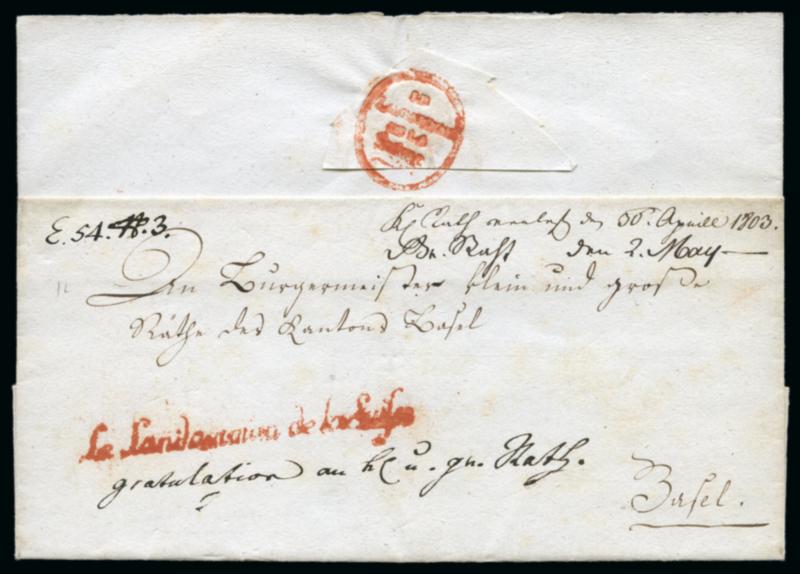 E. 54. N. 3.
Kl. Rath verlesen den 30. Aprill 1803.
Gr. Raht den 2. May
Den Burgermeister klein und große
Räthe des Kantons Basel
Le Landamman de la Suisse
gratulation an kl u. gr. Rath.
Basel.